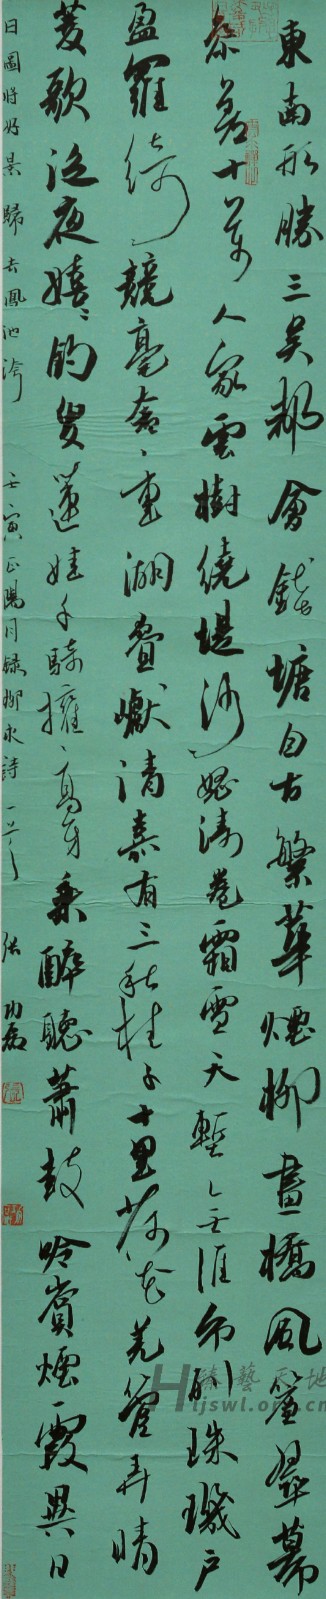 東南形勝三吳都會錢塘自古繁華煙柳畫橋風簾翠幕
參差十萬人家雲樹繞堤沙怒濤卷霜雪天塹無涯市列珠璣戶
盈羅綺競豪奢重湖疊巘清嘉有三秋桂子十里荷花羌管弄晴
菱歌泛夜嬉〻釣叟蓮娃千騎擁高牙乘醉聽蕭鼓吟賞煙霞異日
日圖將好景歸去鳳池誇 壬寅正陽月錄柳永詩一首 張功磊
藝天地
ljswl.org.cn